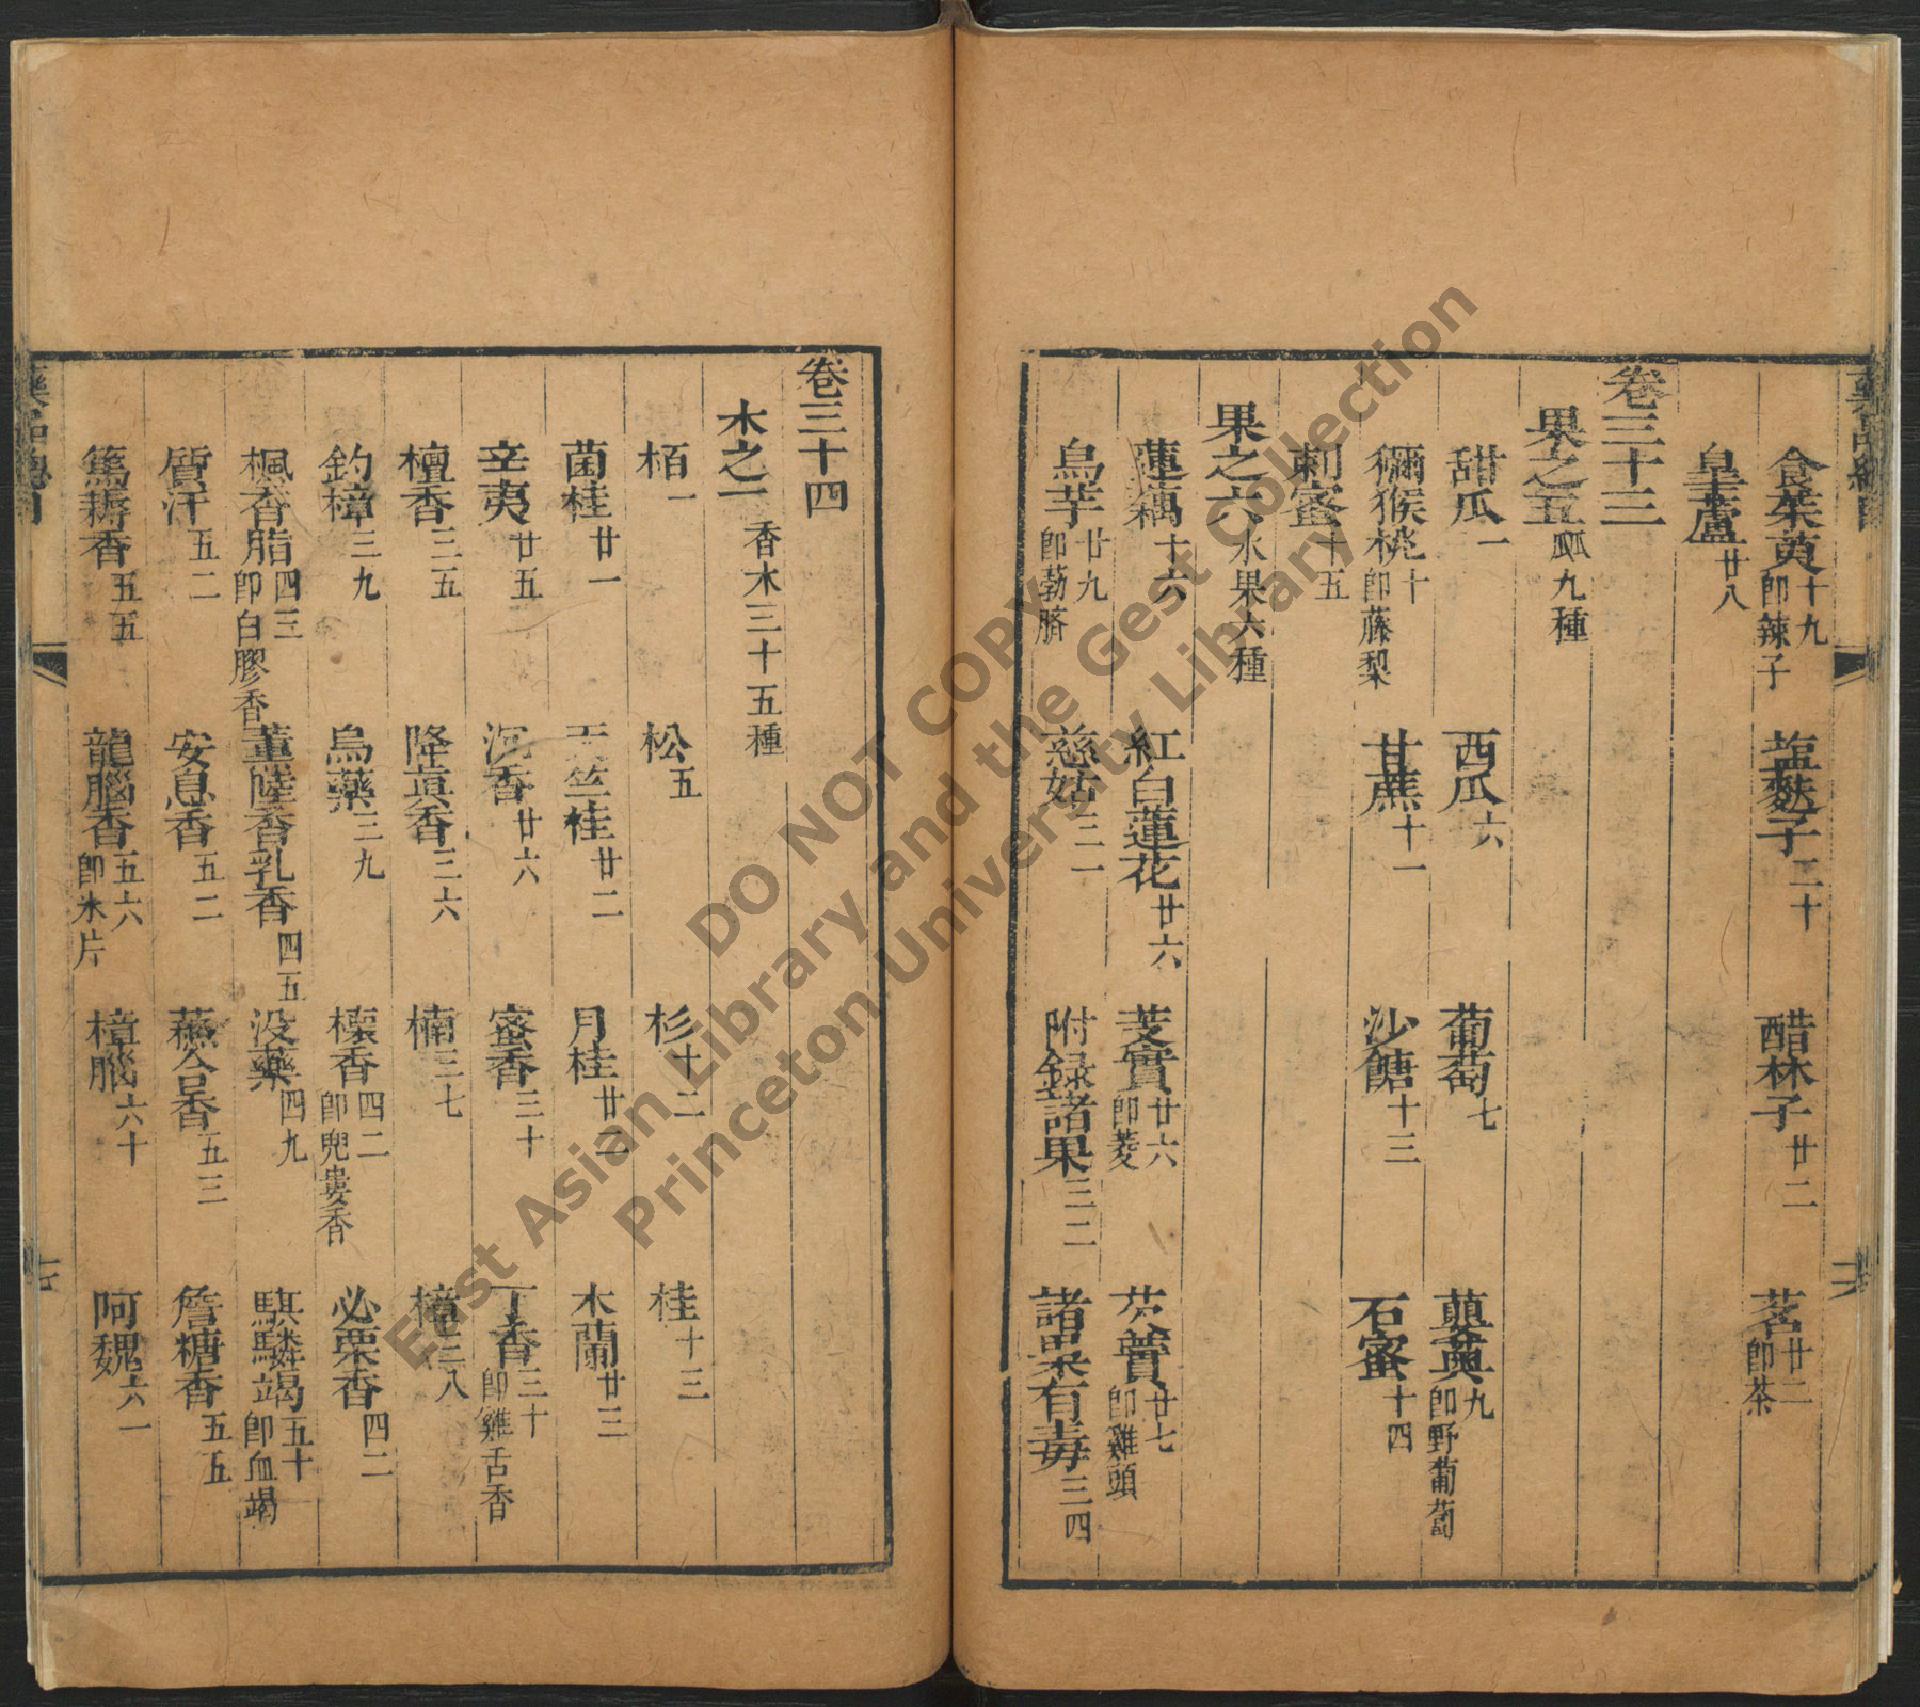 食茱萸十九即辣子 鹽麩子二十 醋林子廿二 茗廿二即茶
皇蘆廿八
卷三十三
果之五 蓏九種
甜瓜一 西瓜六 葡萄七 蘡薁九即野葡萄
獼猴桃十即藤梨 甘蔗十一 沙餹十三 石蜜十四
刺蜜十五
果之六 水果六種
蓮藕十六 紅白蓮花廿六 芰實廿六即菱 芡實廿七即雞頭
烏芋廿九即葧臍 慈姑三一 附錄諸果三二 諸果有毒三四
卷三十四
木之一 香木三十五種
栢一 松五 杉十二 桂十三
菌桂廿一 天竺桂廿二 月桂廿二 木蘭廿三
辛夷廿五 沉香廿六 蜜香三十 丁香三十即雞舌香
檀香三五 降真香三六 楠三七 樟三八
釣樟三九 烏藥三九 櫰香四二即兜婁香 必栗香四二
楓香脂四三即白膠香 薰陸香乳香四五 沒藥四九 騏驎竭五十即血竭
質汗五二 安息香五二 蘇合香五三 詹糖香五五
篤耨香五五 龍腦香五六即氷片 樟腦六十 阿魏六一
藥品總目
DO NOT COPY
East Asian Library and the Gest Collection
Princeton University Library